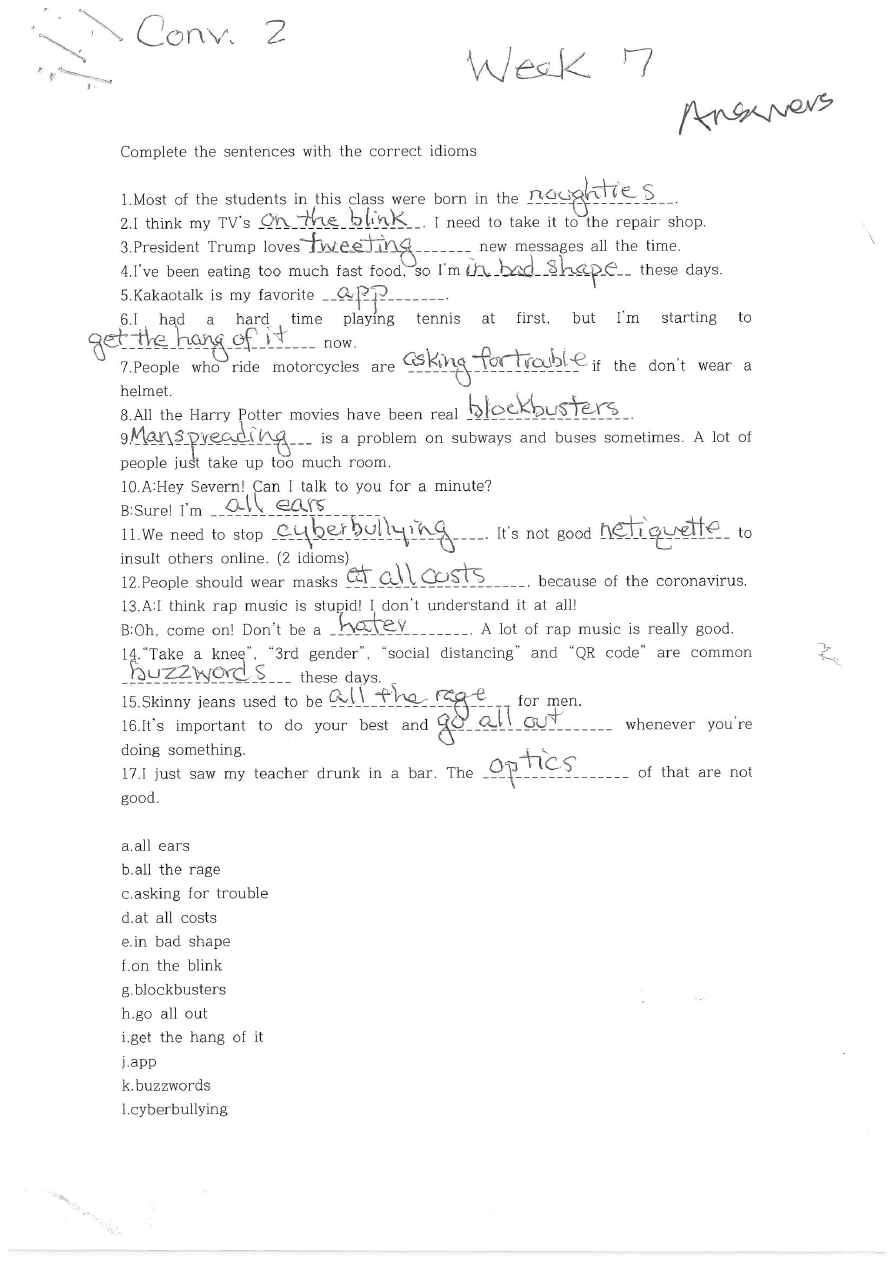 Conv. 2
Week 7
Answers
Complete the sentences with the correct idioms
1.Most of the students in this class were born in the noughties.
2.I think my TV's on the blink. I need to take it to the repair shop.
3.President Trump loves tweeting new messages all the time.
4.I've been eating too much fast food, so I'm in bad shape these days.
5.Kakaotalk is my favorite app.
6.I had a hard time playing tennis at first, but I'm starting to
get the hang of it now.
7.People who ride motorcycles are asking for trouble if the don't wear a
helmet.
8.All the Harry Potter movies have been real blockbusters.
9.Manspreading is a problem on subways and buses sometimes. A lot of
people just take up too much room.
10.A:Hey Severn! Can I talk to you for a minute?
B:Sure! I'm all ears
11.We need to stop cyberbullying. It's not good netiquette to
insult others online. (2 idioms)
12.People should wear masks at all costs, because of the coronavirus.
13.A:I think rap music is stupid! I don't understand it at all!
B:Oh, come on! Don't be a hater. A lot of rap music is really good.
14."Take a knee", "3rd gender", "social distancing" and "QR code" are common
buzzwords these days.
15.Skinny jeans used to be all the rage for men.
16.It's important to do your best and go all out whenever you're
doing something.
17.I just saw my teacher drunk in a bar. The optics of that are not
good.
a.all ears
b.all the rage
c.asking for trouble
d.at all costs
e.in bad shape
f.on the blink
g.blockbusters
h.go all out
i.get the hang of it
j.app
k.buzzwords
l.cyberbullying